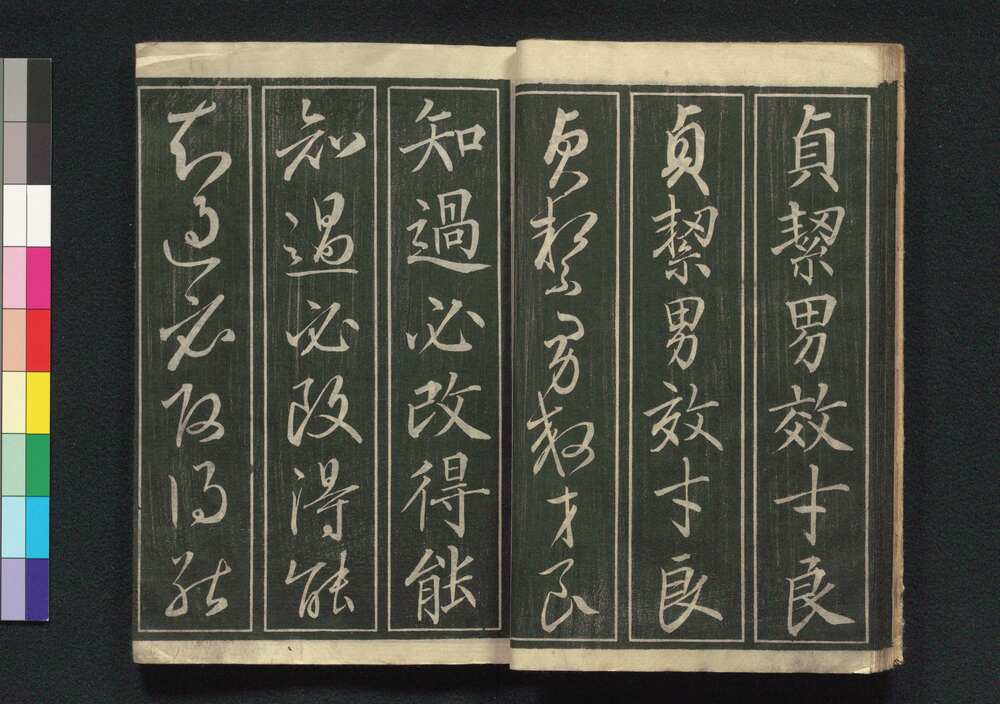 貞絜男效才良
貞絜男效才良
貞絜男效才良
知過必改得能
知過必改得能
知過必改得能